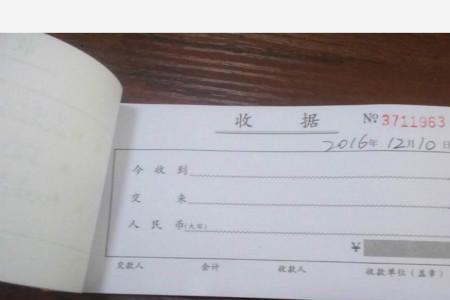 收 据 № 3711963
2016年 12月10日
今 收 到
交 来
人 民 币(大写)
¥
交款人 会计 收款人 收款单位(盖章)